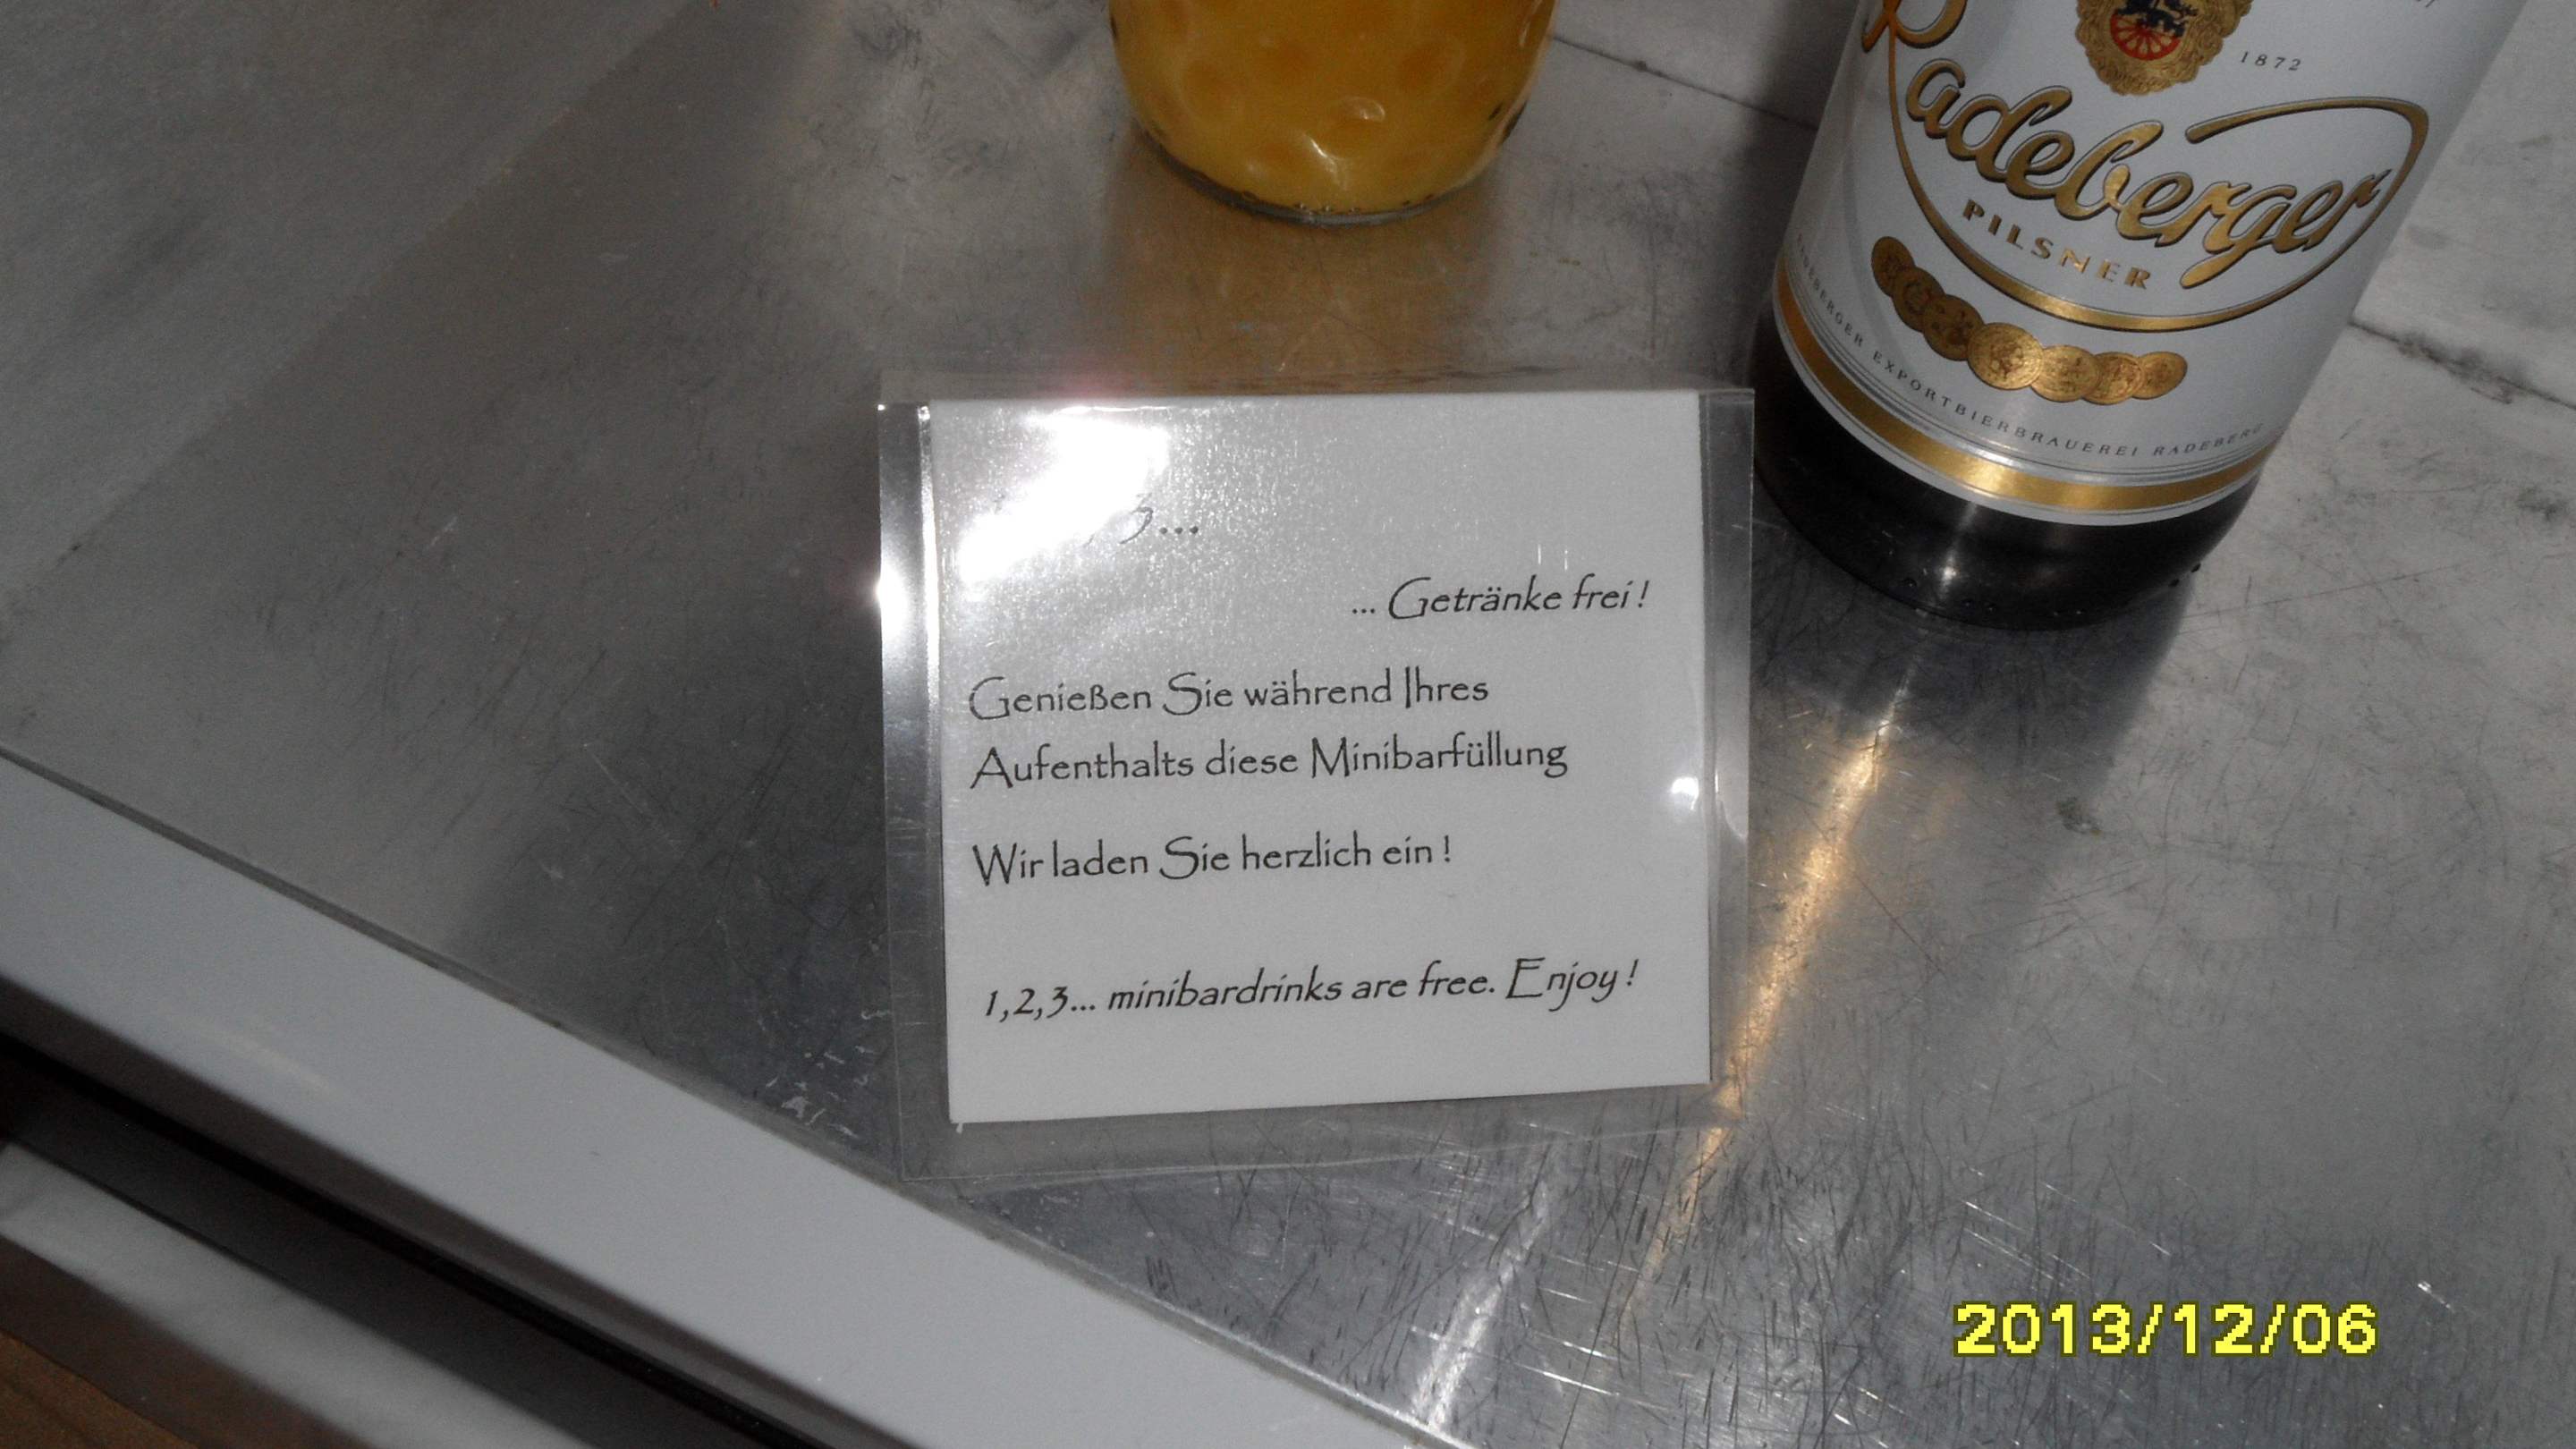 1872
Radeberger
PILSNER
RADEBERGER EXPORTBIERBRAUEREI RADEBERG
3...
... Getränke frei !
Genießen Sie während Ihres
Aufenthalts diese Minibarfüllung
Wir laden Sie herzlich ein !
1,2,3... minibardrinks are free. Enjoy !
2013/12/06